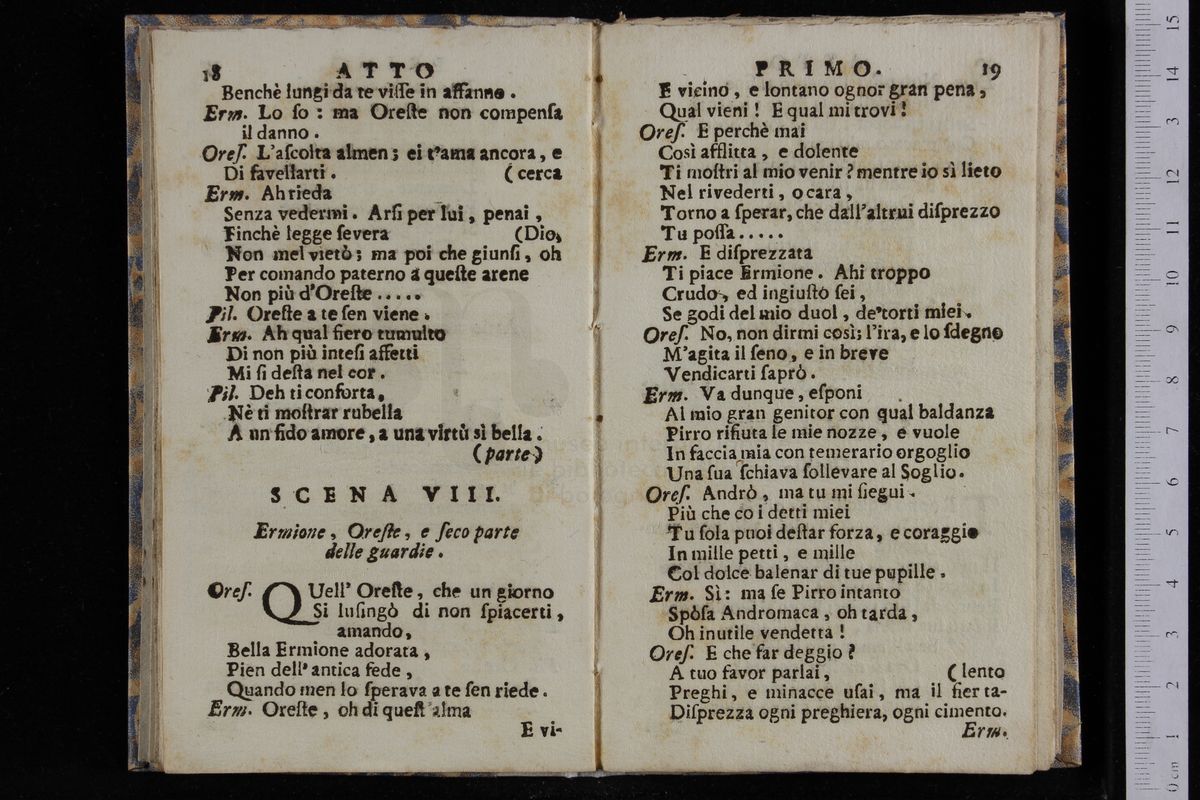 18 ATTO
Benchè lungi da te viſſe in affanno.
Erm. Lo ſo: ma Oreſte non compenſa
il danno.
Oreſ. L'aſcolta almen; ei t'ama ancora, e
Di favellarti. (cerca
Erm. Ah rieda
Senza vedermi. Arſi per lui, penai,
Finchè legge ſevera (Dio,
Non mel vietò; ma poi che giunſi, oh
Per comando paterno a queſte arene
Non più d'Oreſte.....
Pil. Oreſte a te ſen viene.
Erm. Ah qual fiero tumulto
Di non più inteſi affetti
Mi ſi deſta nel cor.
Pil. Deh ti conforta,
Nè ti moſtrar rubella
A un fido amore, a una virtù sì bella.
(parte)
SCENA VIII.
Ermione, Oreſte, e ſeco parte
delle guardie.
Oreſ. QUell' Oreſte, che un giorno
Si luſingò di non ſpiacerti,
amando,
Bella Ermione adorata,
Pien dell' antica fede,
Quando men lo ſperava a te ſen riede.
Erm. Oreſte, oh di queſt' alma
E vi-
PRIMO. 19
E vicino, e lontano ognor gran pena,
Qual vieni! E qual mi trovi!
Oreſ. E perchè mai
Così afflitta, e dolente
Ti moſtri al mio venir? mentre io sì lieto
Nel rivederti, o cara,
Torno a ſperar, che dall'altrui diſprezzo
Tu poſſa.....
Erm. E diſprezzata
Ti piace Ermione. Ahi troppo
Crudo, ed ingiuſto ſei,
Se godi del mio duol, de'torti miei.
Oreſ. No, non dirmi così; l'ira, e lo ſdegno
M'agita il ſeno, e in breve
Vendicarti ſaprò.
Erm. Va dunque, eſponi
Al mio gran genitor con qual baldanza
Pirro rifiuta le mie nozze, e vuole
In faccia mia con temerario orgoglio
Una ſua ſchiava ſollevare al Soglio.
Oreſ. Andrò, ma tu mi ſiegui.
Più che co i detti miei
Tu ſola puoi deſtar forza, e coraggio
In mille petti, e mille
Col dolce balenar di tue pupille.
Erm. Sì: ma ſe Pirro intanto
Spòſa Andromaca, oh tarda,
Oh inutile vendetta!
Oreſ. E che far deggio?
A tuo favor parlai, (lento
Preghi, e minacce uſai, ma il fier ta-
Diſprezza ogni preghiera, ogni cimento.
Erm.